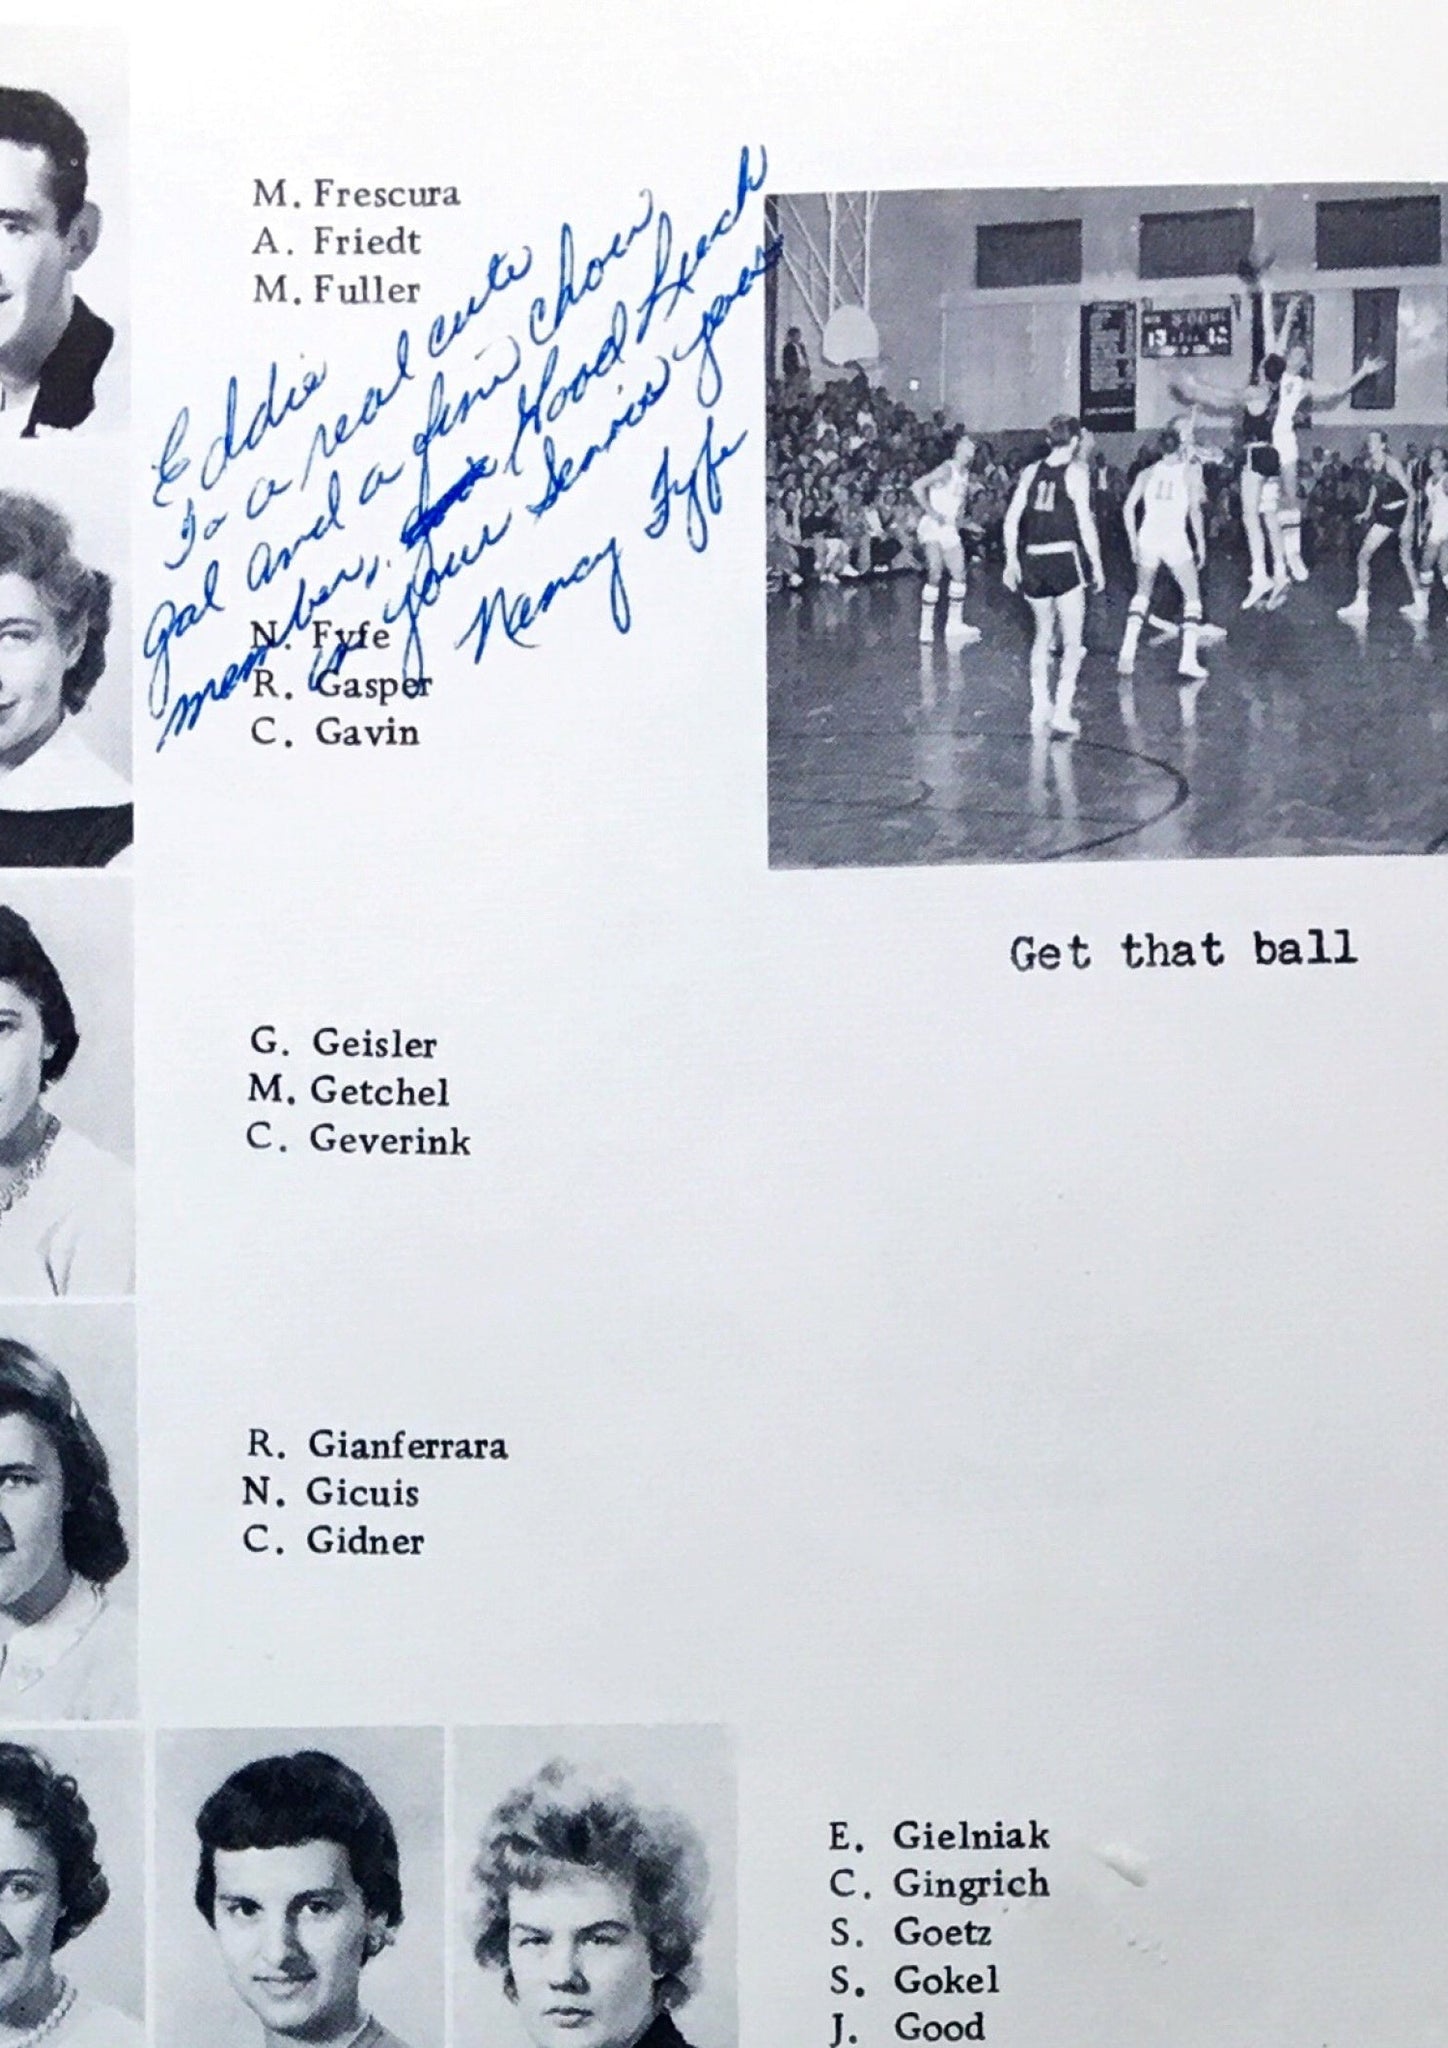 M. Frescura
A. Friedt
M. Fuller
Eddie
To a real cute
gal and a fine choir
member, Good Luck
in your Senior years
Nancy Fyfe
N. Fyfe
R. Gasper
C. Gavin
11
11
Get that ball
G. Geisler
M. Getchel
C. Geverink
R. Gianferrara
N. Gicuis
C. Gidner
E. Gielniak
C. Gingrich
S. Goetz
S. Gokel
J. Good